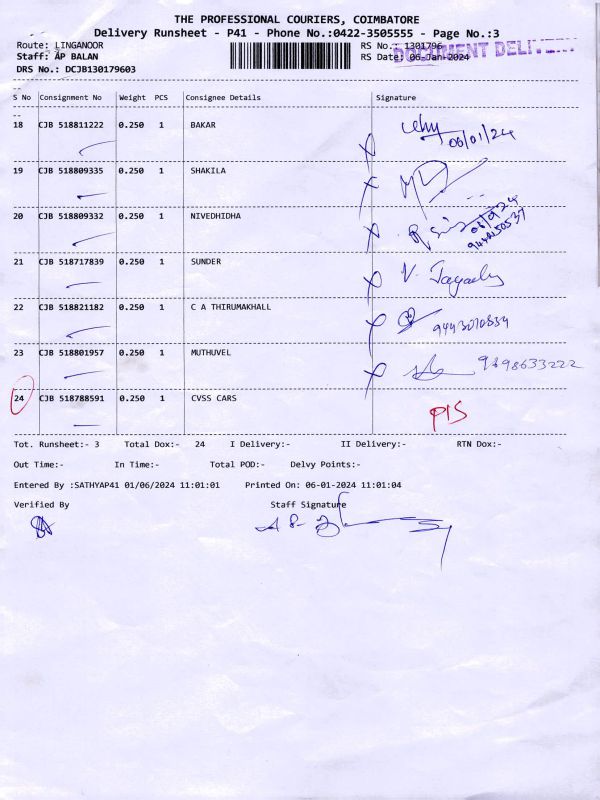 THE PROFESSIONAL COURIERS, COIMBATORE
Delivery Runsheet - P41 - Phone No.:0422-3505555 - Page No.:3
Route: LINGANOOR RS No.: 1301796
Staff: AP BALAN RS Date: 06-Jan-2024
DRS No.: DCJB130179603
DOCUMENT
S No Consignment No Weight PCS Consignee Details Signature
18 CJB 518811222 0.250 1 BAKAR
06/01/24
19 CJB 518809335 0.250 1 SHAKILA
20 CJB 518809332 0.250 1 NIVEDHIDHA
21 CJB 518717839 0.250 1 SUNDER
22 CJB 518821182 0.250 1 C A THIRUMAKHALL
9443070834
23 CJB 518801957 0.250 1 MUTHUVEL
9898633222
24 CJB 518788591 0.250 1 CVSS CARS
P15
Tot. Runsheet:- 3 Total Dox:- 24 I Delivery:- II Delivery:- RTN Dox:-
Out Time:- In Time:- Total POD:- Delvy Points:-
Entered By :SATHYAP41 01/06/2024 11:01:01 Printed On: 06-01-2024 11:01:04
Verified By Staff Signature